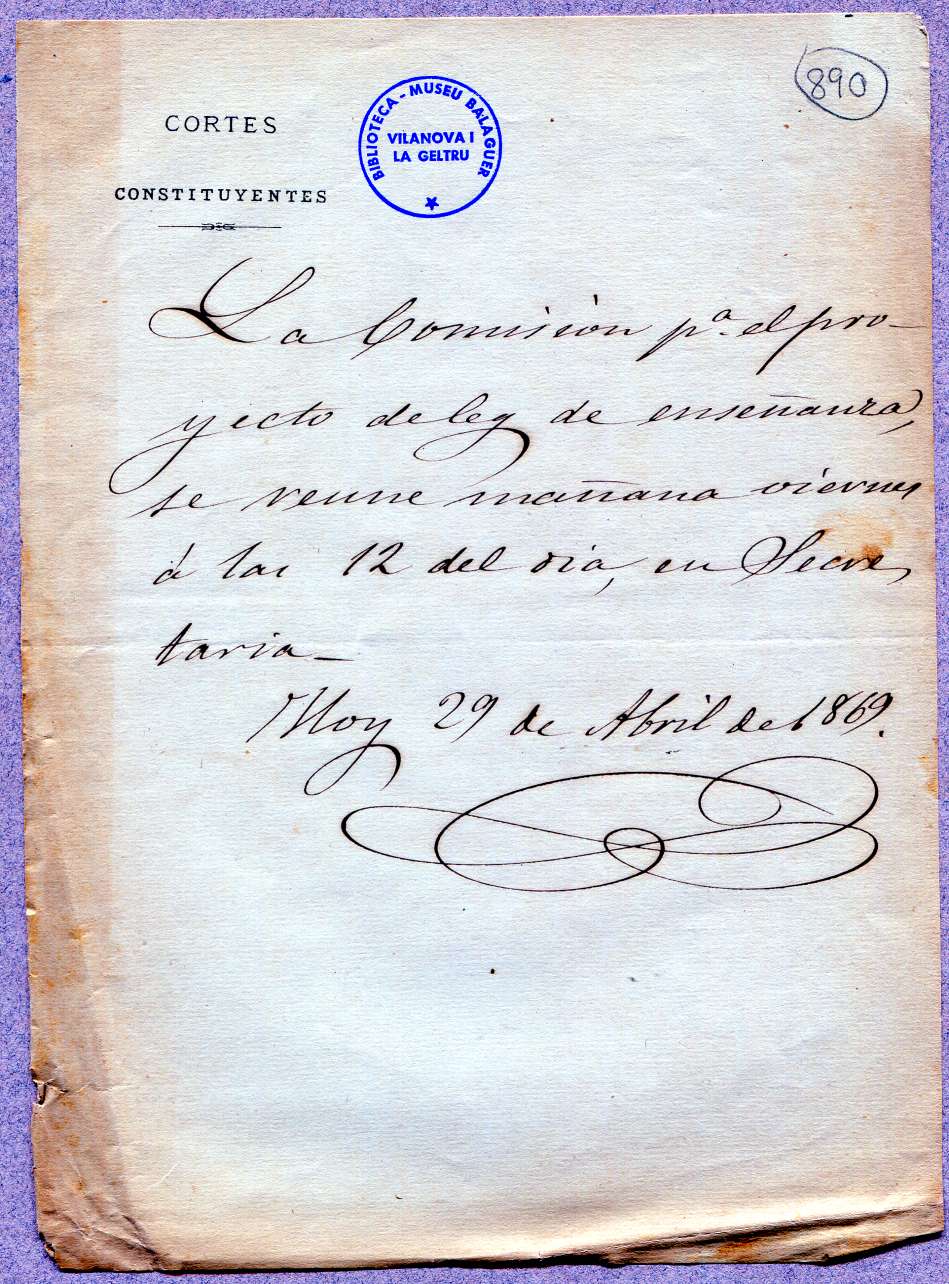 890
CORTES
CONSTITUYENTES
BIBLIOTECA - MUSEU BALAGUER
VILANOVA I
LA GELTRU
La Comisión pª. el pro-
yecto de ley de enseñanza,
se reune mañana viernes
á las 12 del dia, en Secre
taria_
Hoy 29 de Abril de 1869.